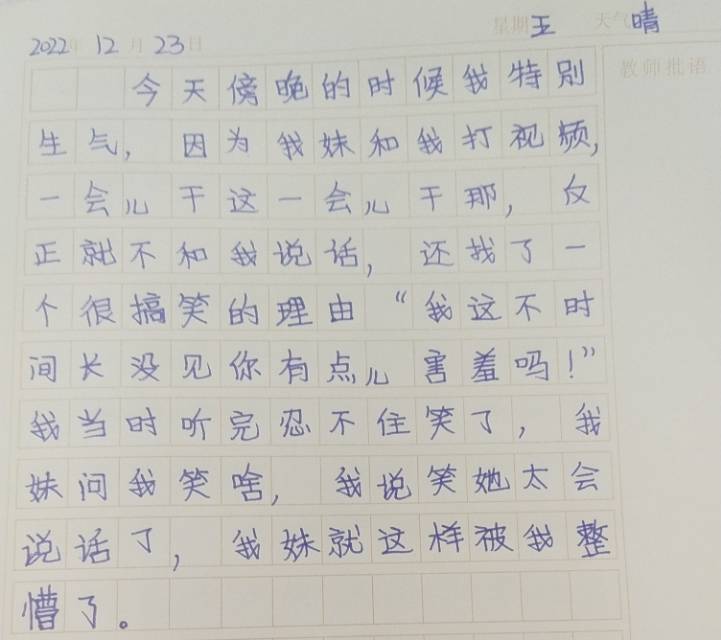 2022年 12月 23日 星期五 天气晴
教师批语
今天傍晚的时候我特别
生气，因为我妹和我打视频，
一会儿干这一会儿干那，反
正就不和我说话，还找了一
个很搞笑的理由“我这不时
间长没见你有点儿害羞吗！”
我当时听完忍不住笑了，我
妹问我笑啥，我说笑她太会
说话了，我妹就这样被我整
懵了。